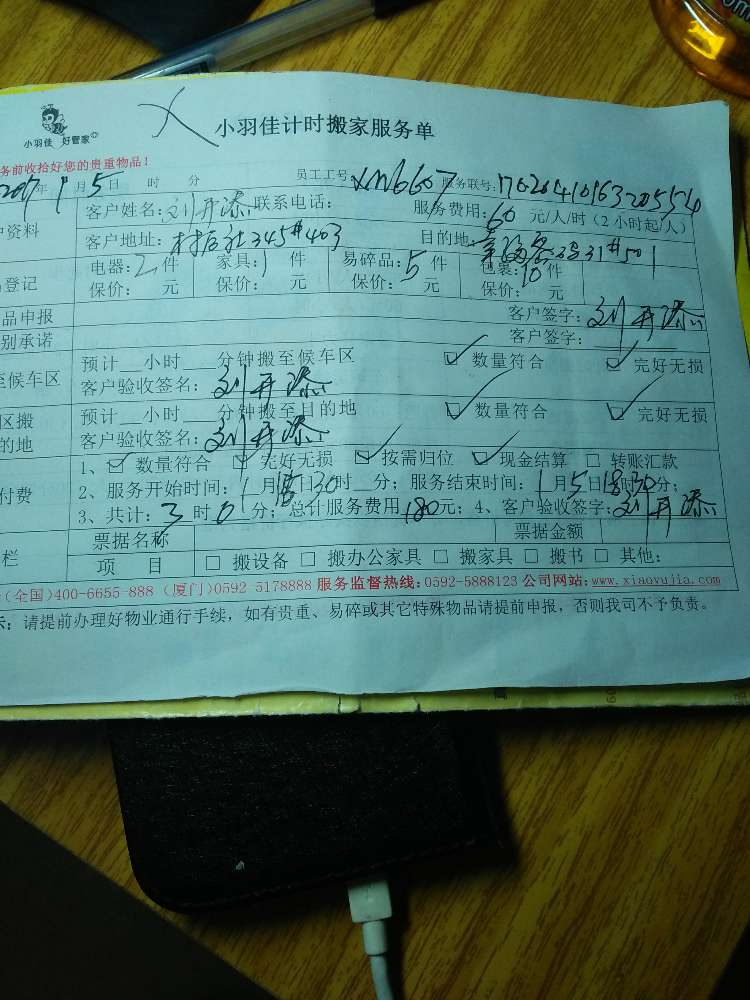 小羽佳 好管家
小羽佳计时搬家服务单
务前收拾好您的贵重物品！
2017年1月5日 时 分 员工工号：XM6607 服务联号：
资料 客户姓名： 联系电话： 服务费用：60 元/人/时（2小时起/人）
客户地址：村后社345#403 目的地：
登记 电器：2件 家具：1件 易碎品：5件 包裹：10件
保价： 元 保价： 元 保价： 元 保价： 元
品申报 客户签字：
别承诺 客户签字：
至候车区 预计__小时__分钟搬至候车区 ☑ 数量符合 ☑ 完好无损
客户验收签名：
区搬 预计__小时__分钟搬至目的地 ☑ 数量符合 ☑ 完好无损
的地 客户验收签名：
1、☑ 数量符合 ☑ 完好无损 ☑ 按需归位 ☑ 现金结算 □ 转账汇款
付费 2、服务开始时间：1月 日 时 分；服务结束时间：1月5日 时 分；
3、共计：3时0分；总计服务费用180元；4、客户验收签字：
票据名称 票据金额
栏 项 目 □ 搬设备 □ 搬办公家具 □ 搬家具 □ 搬书 □ 其他：
(全国)400-6655 888 (厦门)0592 5178888 服务监督热线：0592-5888123 公司网站：www.xiaoyujia.com
示：请提前办理好物业通行手续，如有贵重、易碎或其它特殊物品请提前申报，否则我司不予负责。